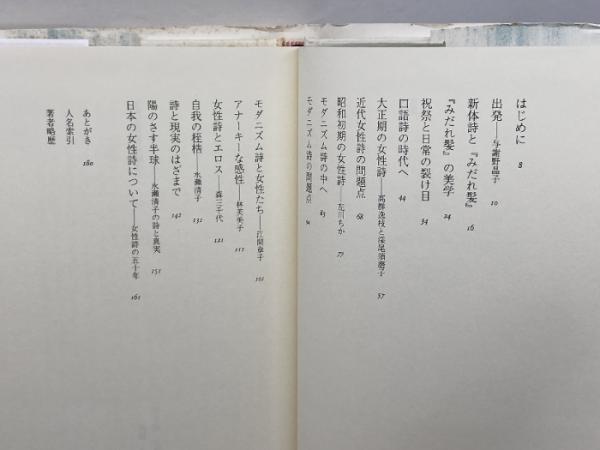 はじめに 8
出発――与謝野晶子 10
新体詩と『みだれ髪』 16
『みだれ髪』の美学 24
祝祭と日常の裂け目 34
口語詩の時代へ 44
大正期の女性詩――高群逸枝と深尾須磨子 57
近代女性詩の問題点 68
昭和初期の女性詩――左川ちか 77
モダニズム詩の中へ 85
モダニズム詩の問題点
モダニズム詩と女性たち――江間章子 101
アナーキーな感性――林芙美子 111
女性詩とエロス――森三千代 121
自我の桎梏――永瀬清子 132
詩と現実のはざまで 142
陽のさす半球――永瀬清子の詩と真実 151
日本の女性詩について――女性詩の五十年 161
あとがき 180
人名索引
著者略歴